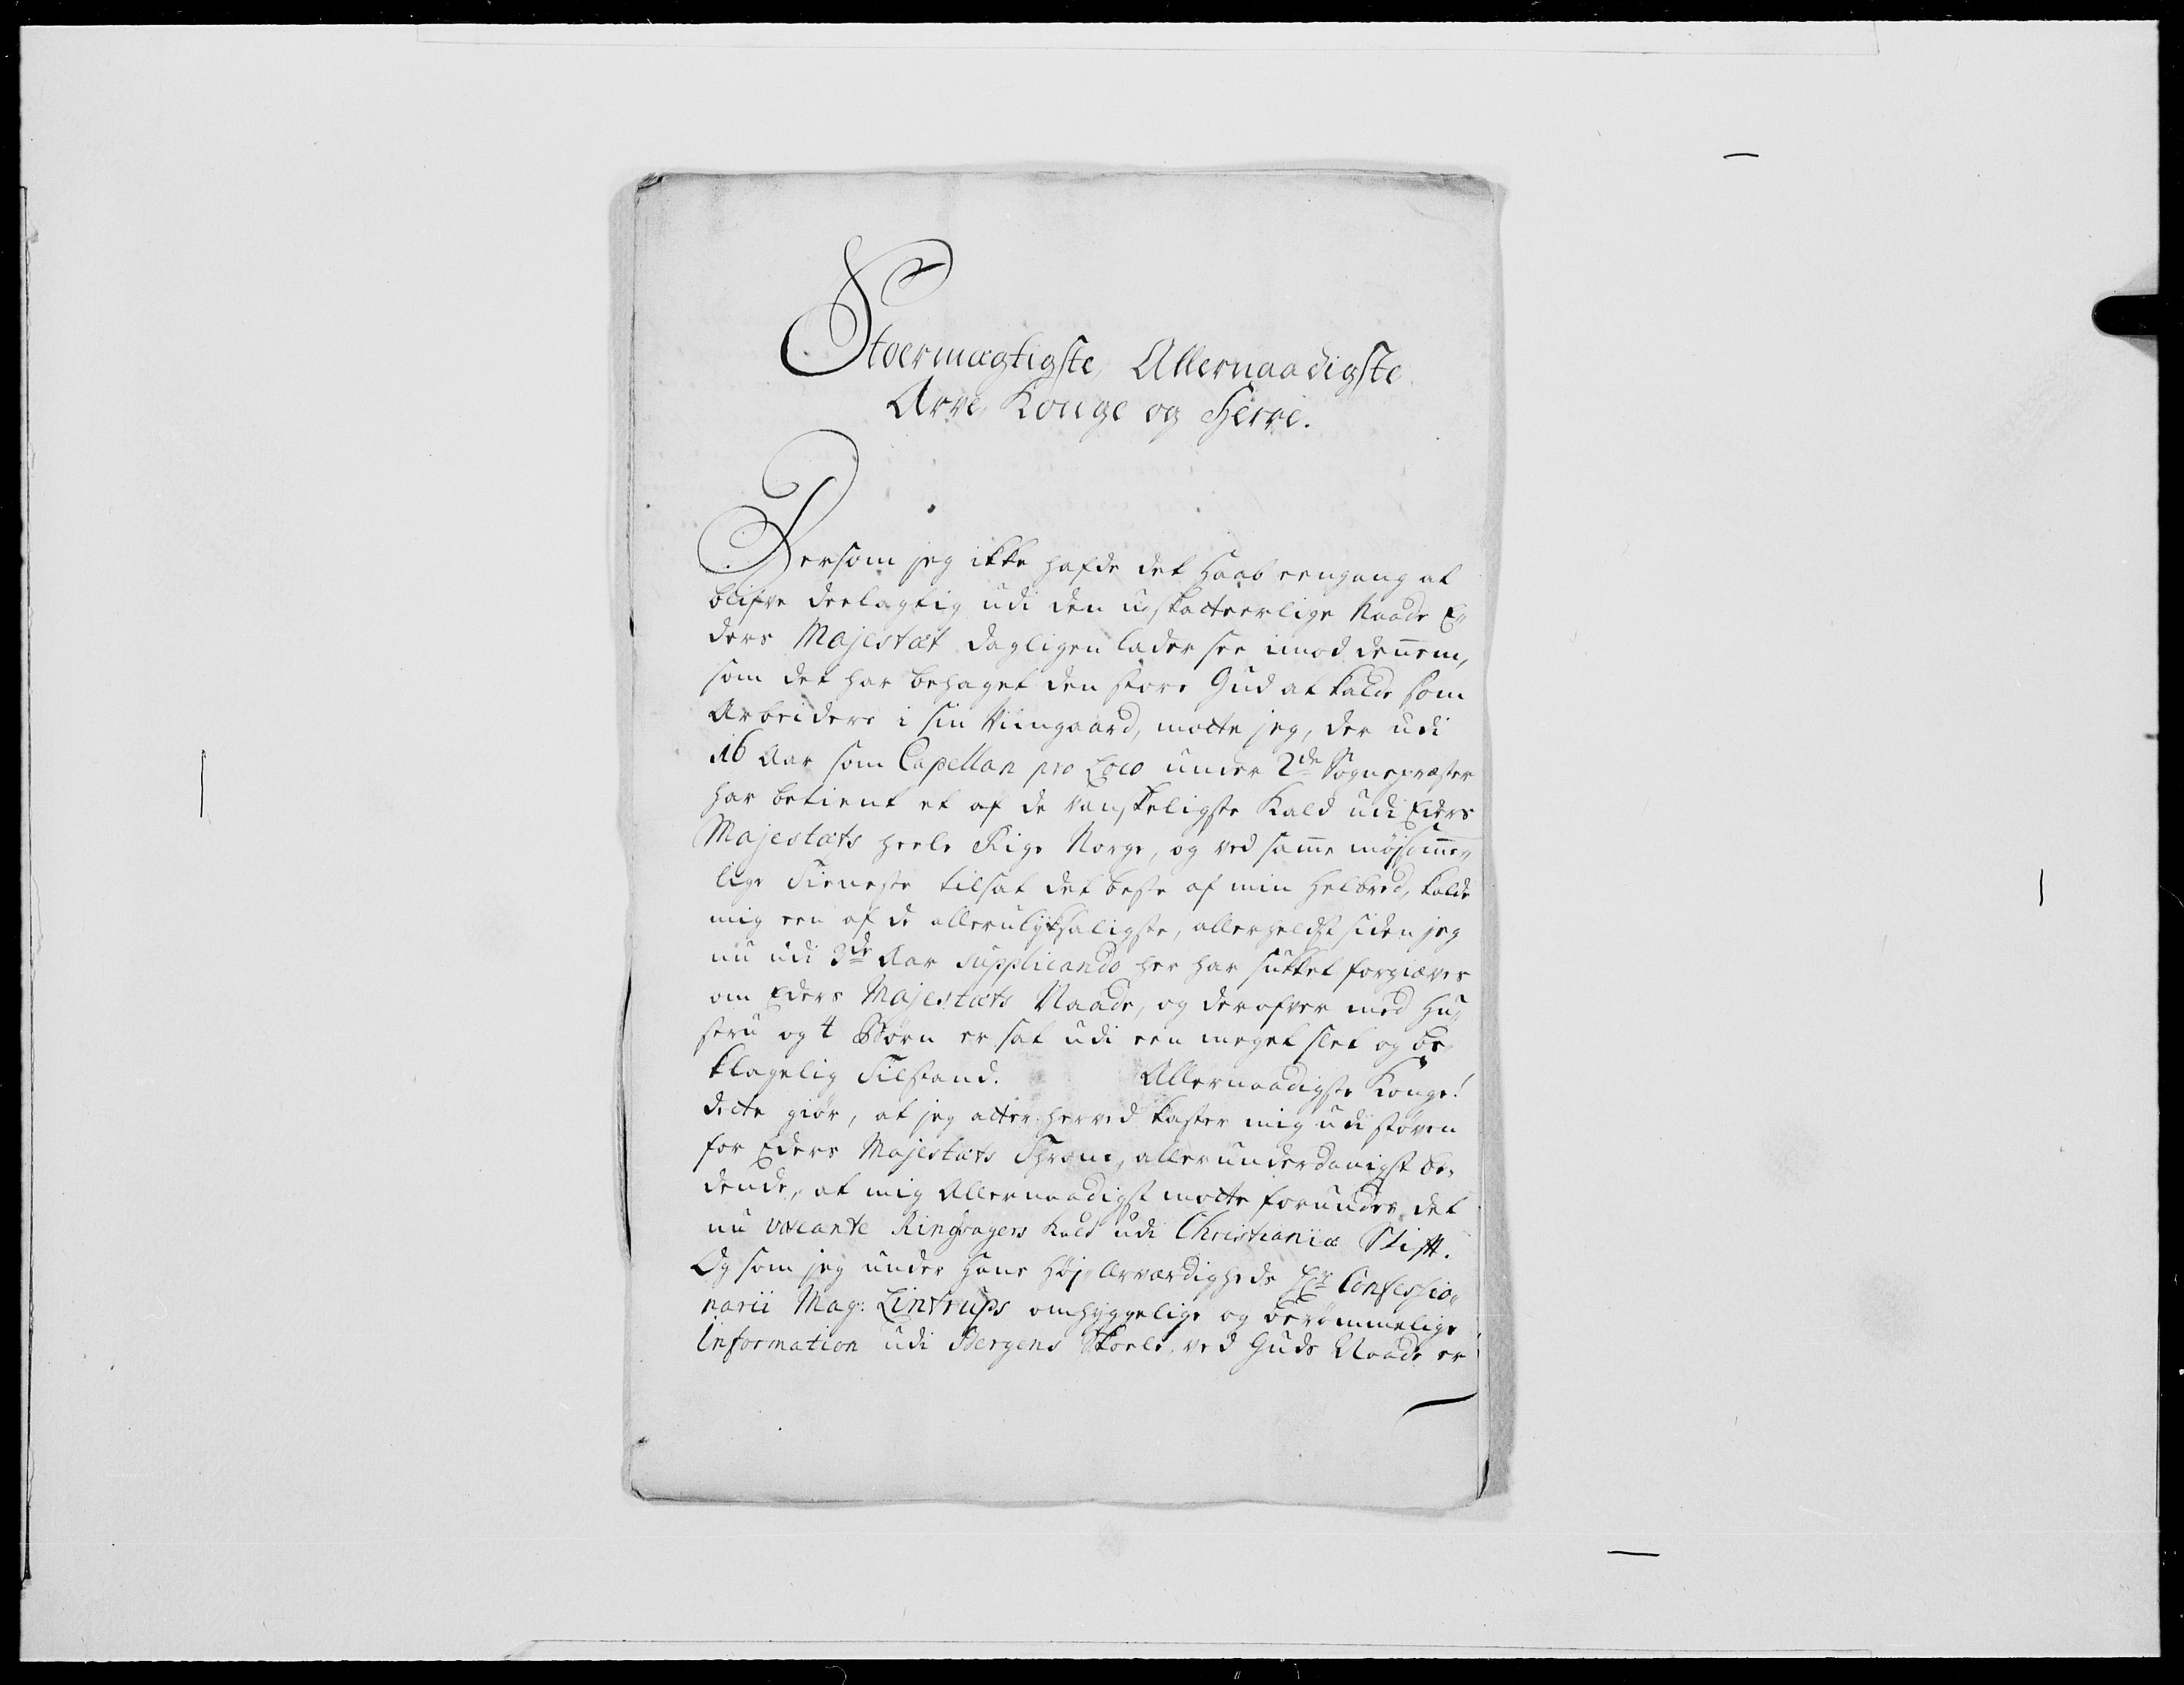 Stoermægtigste, Allernaadigste
Arve Konge og Herre.
Dersom jeg ikke hafde det Haab eengang at
blifve deelagtig udi den uskatteerlige Naade E„
ders Majestæt dagligen lader see imod dennem,
som det har behaget den store Gud at kalde som
Arbeidere i sin Viingaard, motte jeg, der udi
16 Aar som Capellan pro Loco under 2de Sognepræster
har betient et af de vanskeligste Kald udi Eders
Majestæts heele Rige Norge, og ved samme møjsomme„
lige Tieneste tilsat det beste af min Helbred, kalde
mig een af de allerulyksaligste, allerheldst siden jeg
nu udi 3de Aar supplicando her har sukket forgiæves
om Eders Majestæts Naade, og derofver med Hu„
stru og 4 Børn er sat udi een meget slet og be„
klagelig Tilstand. Allernaadigste Konge!
dette giør, at jeg atter herved kaster mig udi støven
for Eders Majestæts Throne, allerunderdanigst be„
dende, at mig Allernaadigst motte forundes det
nu vacante Ringsagers Kald udi Christianiæ Stift.
Og som jeg under Hans Høj Ærværdigheds Hr Confessio„
narii Mag: Lintrups omhyggelige og berømmelige
Information udi Bergens Skoele, ved Guds Naade er